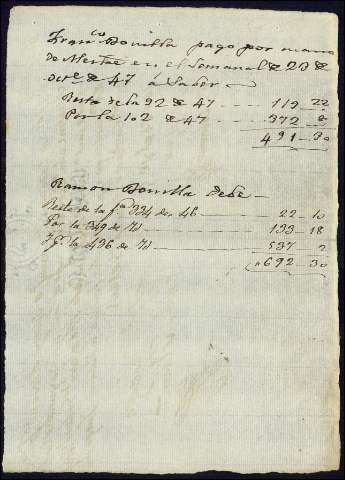 Franco Bonilla pago por mano
de Mestre en el Semanal de 23 de
Octe de 47 á Saber
Resto de la 92 de 47 119 22
Por la 102 de 47 372 8
491-30
Ramon Bonilla Debe
Resto de la fa 334 de 46 22-10
Por la 349 de Yd 133-18
Yd la 436 de Yd 537 2
692-30